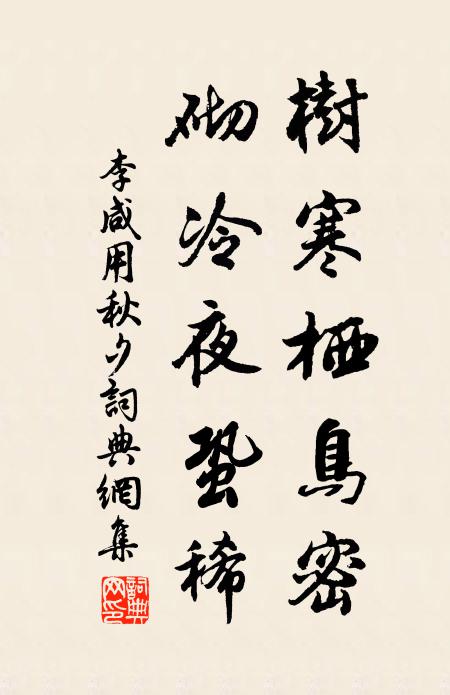 樹寒栖鳥密
砌冷夜蛩稀
李咸用秋夕詞典網集
詞典网印